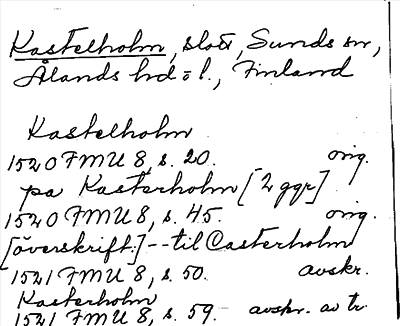 Kastelholm, slott, Sunds sn,
Ålands hd o l., Finland
Kastelholm
1520 FMU 8, s. 20. orig.
pa Kasterholm [2 ggr]
1520 FMU 8, s. 45. orig.
[överskrift:] -- til Casterholm
1521 FMU 8, s. 50. avskr.
Kasterholm
1521 FMU 8, s. 59. avskr. av tr.